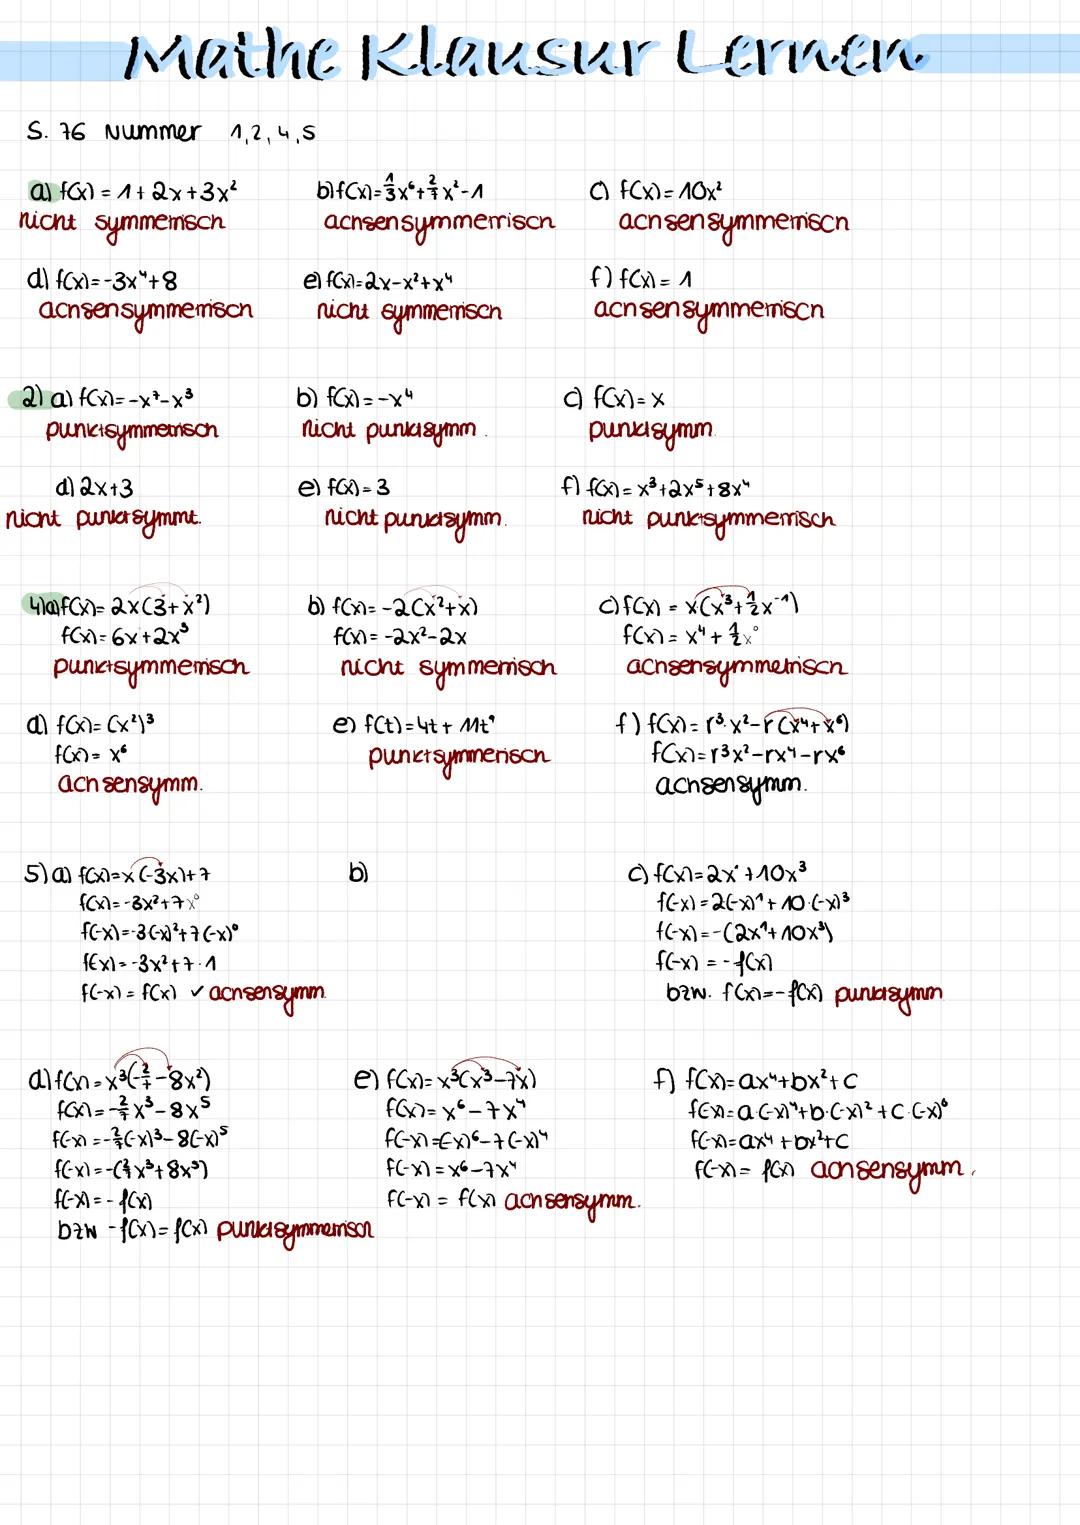 Mathe Klausur Lernen
S. 76 Nummer 1,2,4,5
a) f(x) = 1 + 2x + 3x²
nicht symmetrisch
b) f(x) = 1/3 x⁶ + 2/7 x² - 1
achsensymmetrisch
c) f(x) = 10x²
achsensymmetrisch
d) f(x) = -3x⁴ + 8
achsensymmetrisch
e) f(x) = 2x - x² + x⁴
nicht symmetrisch
f) f(x) = 1
achsensymmetrisch
2) a) f(x) = -x⁷ - x³
punktsymmetrisch
b) f(x) = -x⁴
nicht punktsymm.
c) f(x) = x
punktsymm.
d) 2x + 3
nicht punktsymmt.
e) f(x) = 3
nicht punktsymm.
f) f(x) = x³ + 2x⁵ + 8x⁴
nicht punktsymmetrisch
4) a) f(x) = 2x(3 + x²)
f(x) = 6x + 2x³
punktsymmetrisch
b) f(x) = -2(x² + x)
f(x) = -2x² - 2x
nicht symmetrisch
c) f(x) = x·(x³ + 1/2 x⁻¹)
f(x) = x⁴ + 1/2 x⁰
achsensymmetrisch
d) f(x) = (x²)³
f(x) = x⁶
achsensymm.
e) f(t) = 4t + 11t⁹
punktsymmetrisch
f) f(x) = r³·x² - r(x⁴ + x⁶)
f(x) = r³x² - rx⁴ - rx⁶
achsensymm.
5) a) f(x) = x·(-3x) + 7
f(x) = -3x² + 7x⁰
f(-x) = -3(-x)² + 7(-x)⁰
f(-x) = -3x² + 7·1
f(-x) = f(x) ✓ achsensymm.
b)
c) f(x) = 2x¹ + 10x³
f(-x) = 2(-x)¹ + 10·(-x)³
f(-x) = -(2x¹ + 10x³)
f(-x) = -f(x)
bzw. f(x) = -f(x) punktsymm
d) f(x) = x³(-2/7 - 8x²)
f(x) = -2/7 x³ - 8x⁵
f(-x) = -2/7(-x)³ - 8(-x)⁵
f(-x) = -(2/7 x³ + 8x⁵)
f(-x) = -f(x)
bzw -f(x) = f(x) punktsymmetrisch
e) f(x) = x³(x³ - 7x)
f(x) = x⁶ - 7x⁴
f(-x) = (-x)⁶ - 7(-x)⁴
f(-x) = x⁶ - 7x⁴
f(-x) = f(x) achsensymm.
f) f(x) = ax⁴ + bx² + c
f(-x) = a·(-x)⁴ + b·(-x)² + c·(-x)⁰
f(-x) = ax⁴ + bx² + c
f(-x) = f(x) achsensymm.